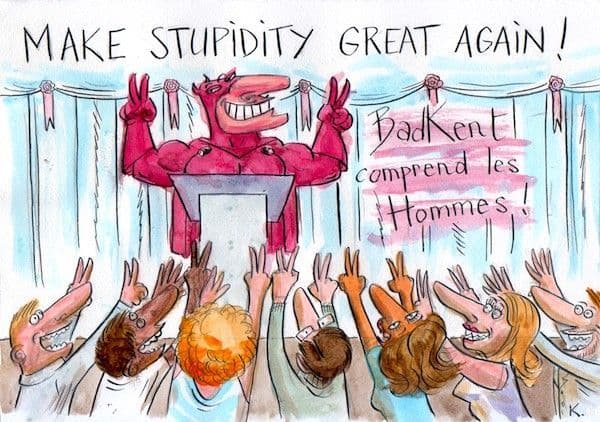 MAKE STUPIDITY GREAT AGAIN!
BadKent
comprend les
Hommes!
K.